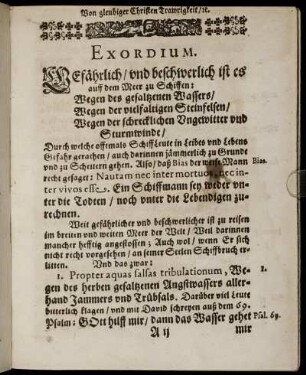 Von gleubiger Christen Trawrigkeit/ꝛc.
EXORDIUM.
GEfährlich/ vnd beschwerlich ist es
auff dem Meer zu Schiffen:
Wegen des gesaltzenen Wassers/
Wegen der vielfaltigen Steinfelsen/
Wegen der schrecklichen Vngewitter vnd
Sturmwinde/
Durch welche offtmals Schiff Leute in Leibes vnd Lebens
Gefahr gerathen/ auch darinnen jämmerlich zu Grunde
vnd zu Scheitern gehen. Also/ daß Bias der weise Mann
Bias.
recht gesaget: Nautam nec inter mortuos, nec in-
ter vivos esse. Ein Schiffmann sey weder vn-
ter die Todten/ noch vnter die Lebendigen zu-
rechnen.
Weit gefährlicher vnd beschwerlicher ist zu reisen
im breiten vnd weiten Meer der Welt/ Weil darinnen
mancher hefftig angestossen; Auch wol/ wenn Er sich
nicht recht vorgesehen/ an seiner Seelen Schiffbruch er-
litten. Vnd das zwar:
1. Propter aquas salsas tribulationum, We-
1.
gen des herben gesaltzenen Angstwassers aller-
hand Jammers vnd Trübsals. Darüber viel Leute
bitterlich klagen/ vnd mit David schreyen auß dem 69.
Psalm: GOtt hilff mir/ dann das Wasser gehet
Psal. 69.
A ij
mir